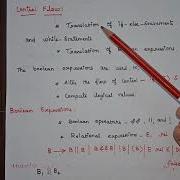 Control Flow:
* Translation of if-else-statements
and while-statements
* Translation of Boolean expressions
The boolean expressions are used to,
* Alter the flow of control -
* Compute logical values.
Boolean Expressions:
* Boolean operators - &&, ||, and !
* Relational expressions - E₁ rel E₂
B → B || B | B && B | !B | (B) | E rel E
B₁ || B₂